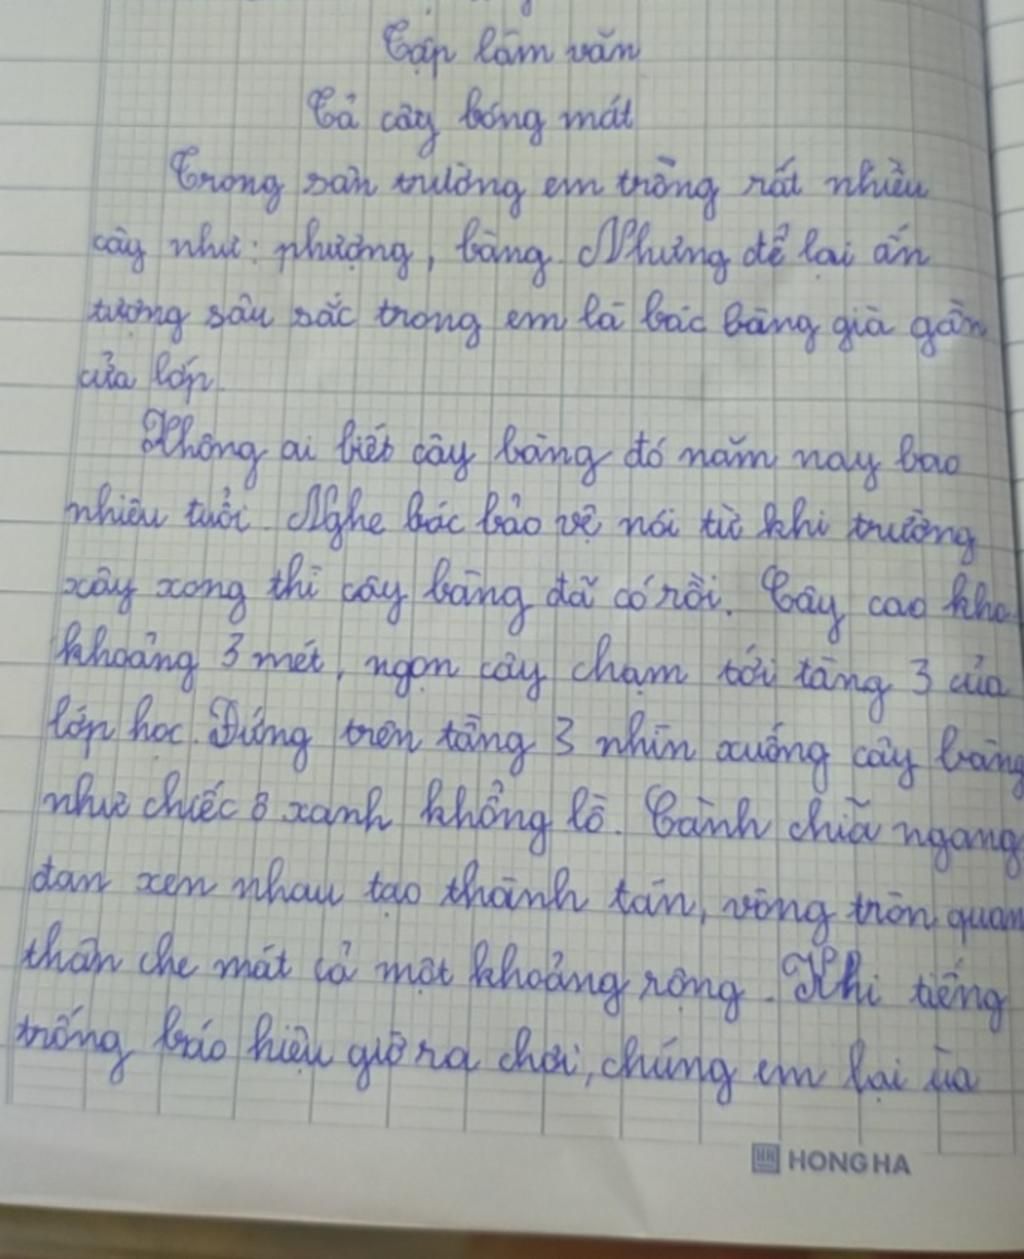 Tập làm văn
Tả cây bóng mát
Trong sân trường em trồng rất nhiều
cây như: phượng, bàng. Nhưng để lại ấn
tượng sâu sắc trong em là bác bàng già gần
cửa lớp.
Không ai biết cây bàng đó năm nay bao
nhiêu tuổi. Nghe bác bảo vệ nói từ khi trường
xây xong thì cây bàng đã có rồi. Cây cao kho
khoảng 3 mét, ngọn cây chạm tới tầng 3 của
lớp học. Đứng trên tầng 3 nhìn xuống cây bàng
như chiếc ô xanh khổng lồ. Cành chĩa ngang
đan xen nhau tạo thành tán, vòng tròn quan
thân che mát cả một khoảng rộng. Khi tiếng
trống báo hiệu giờ ra chơi, chúng em lại ùa
HONG HA